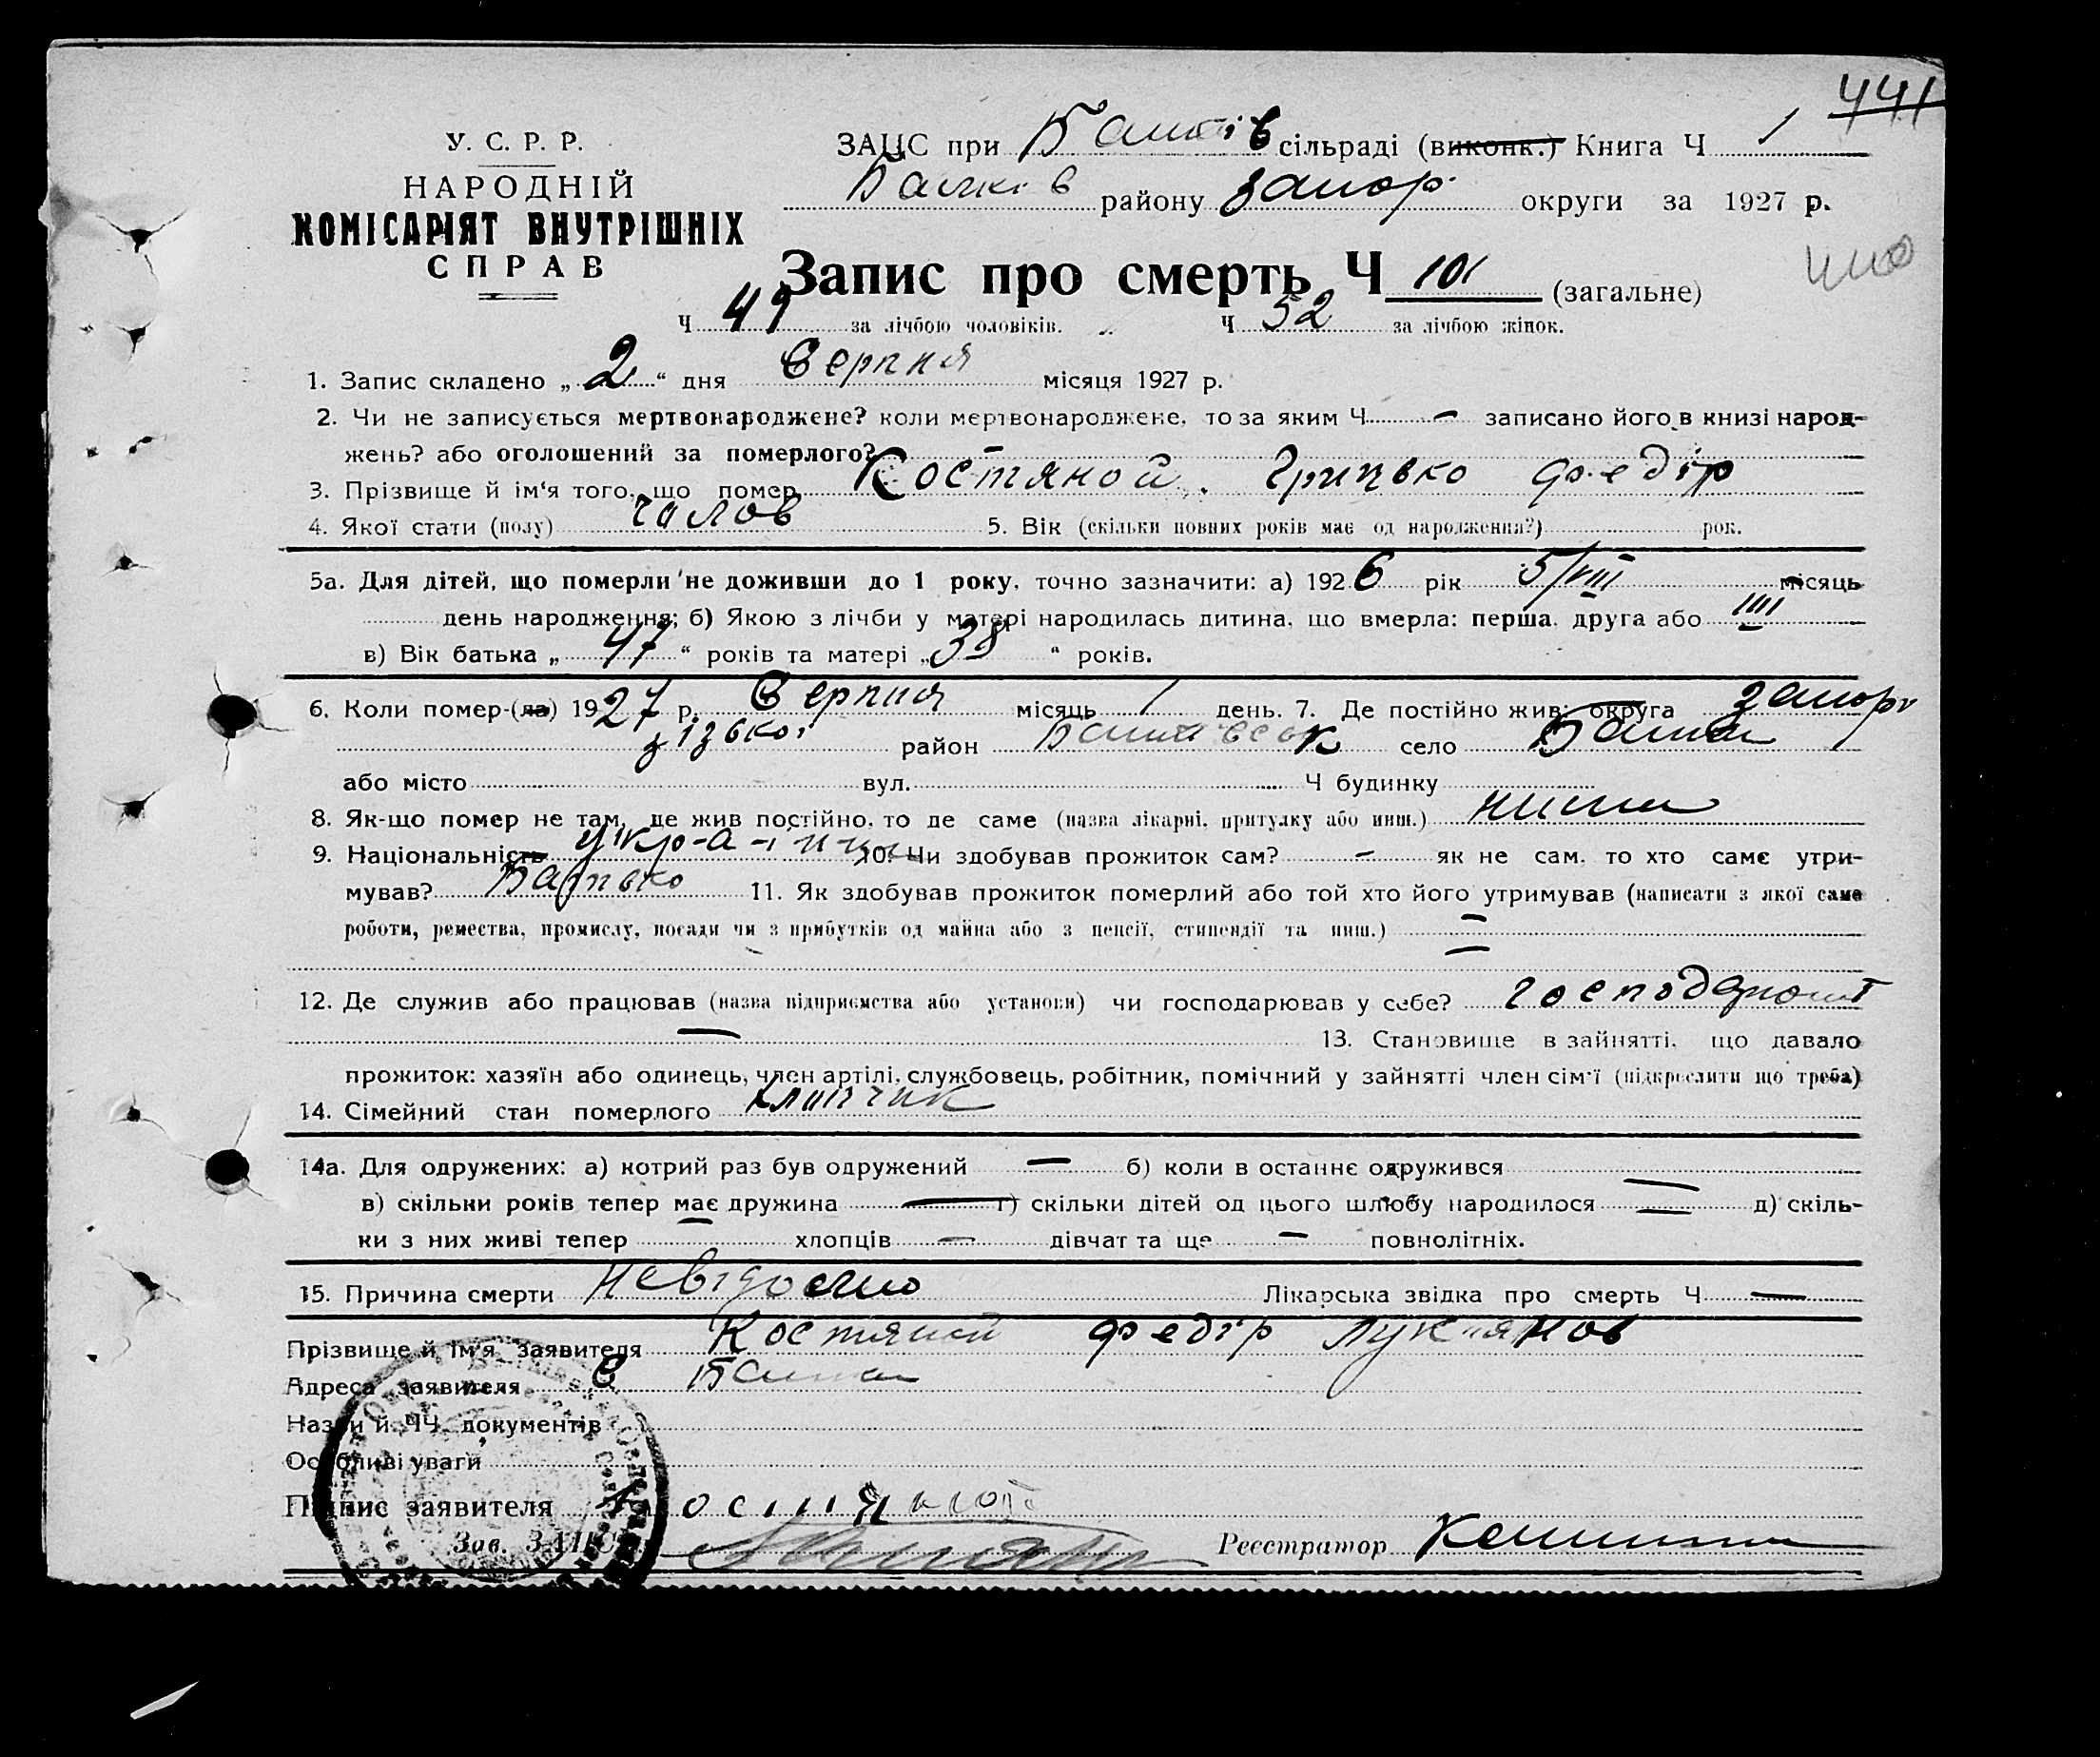 441
У. С. Р. Р.
НАРОДНІЙ
КОМІСАРІЯТ ВНУТРІШНІХ
СПРАВ
ЗАЦС при сільраді (виконк.) Книга Ч 1
району Запор. округи за 1927 р.
Запис про смерть Ч 101 (загальне)
Ч 49 за лічбою чоловіків. Ч 52 за лічбою жінок.
1. Запис складено „ 2 “ дня Серпня місяця 1927 р.
2. Чи не записується мертвонароджене? коли мертвонароджене, то за яким Ч — записано його в книзі народ-
жень? або оголошений за померлого?
3. Прізвище й ім‘я того, що помер Костяной Грицько Федір
4. Якої стати (полу) чолов 5. Вік (скільки повних років має од народження?) рок.
5а. Для дітей, що померли не доживши до 1 року, точно зазначити: а) 1926 рік 5/VIII місяць
день народження; б) Якою з лічби у матері народилась дитина, що вмерла: перша, друга або IIII
в) Вік батька „ 47 “ років та матері „ 38 “ років.
6. Коли помер-(ла) 1927 р. Серпня місяць 1 день. 7. Де постійно жив: округа Запорі
зізької район село
або місто вул. Ч будинку
8. Як-що помер не там, де жив постійно, то де саме (назва лікарні, притулку або инш.)
9. Національність 10. Чи здобував прожиток сам? — як не сам, то хто саме утри-
мував? Батько 11. Як здобував прожиток померлий або той хто його утримував (написати з якої саме
роботи, ремества, промислу, посади чи з прибутків од майна або з пенсії, стипендії та инш.) —
—
12. Де служив або працював (назва підприємства або установи) чи господарював у себе?
— 13. Становище в зайнятті, що давало
прожиток: хазяїн або одинець, член артілі, службовець, робітник, помічний у зайнятті член сім'ї (підкреслити що треба)
14. Сімейний стан померлого хлопчик
14а. Для одружених: а) котрий раз був одружений — б) коли в останнє одружився —
в) скільки років тепер має дружина — г) скільки дітей од цього шлюбу народилося — д) скіль-
ки з них живі тепер — хлопців — дівчат та ще — повнолітніх.
15. Причина смерти Невідомо Лікарська звідка про смерть Ч —
Прізвище й ім'я заявителя Костяной Федір Лукянов
Адреса заявителя с
Назви й ЧЧ документів
Особливі уваги
Підпис заявителя Костяной
Зав. ЗАЦС Реєстратор